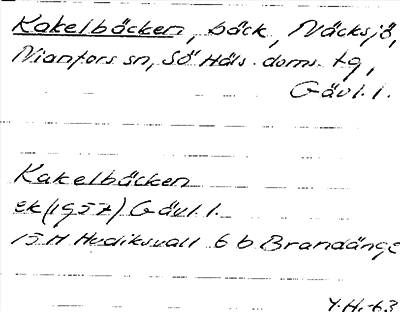 Kakelbäcken, bäck, Näcksjö,
Nianfors sn, Sö Häls. doms. tg,
Gävl. l.
Kakelbäcken
ek (1957) Gävl. l.
15 H Hudiksvall 6 b Brandänge
Y.H. 63